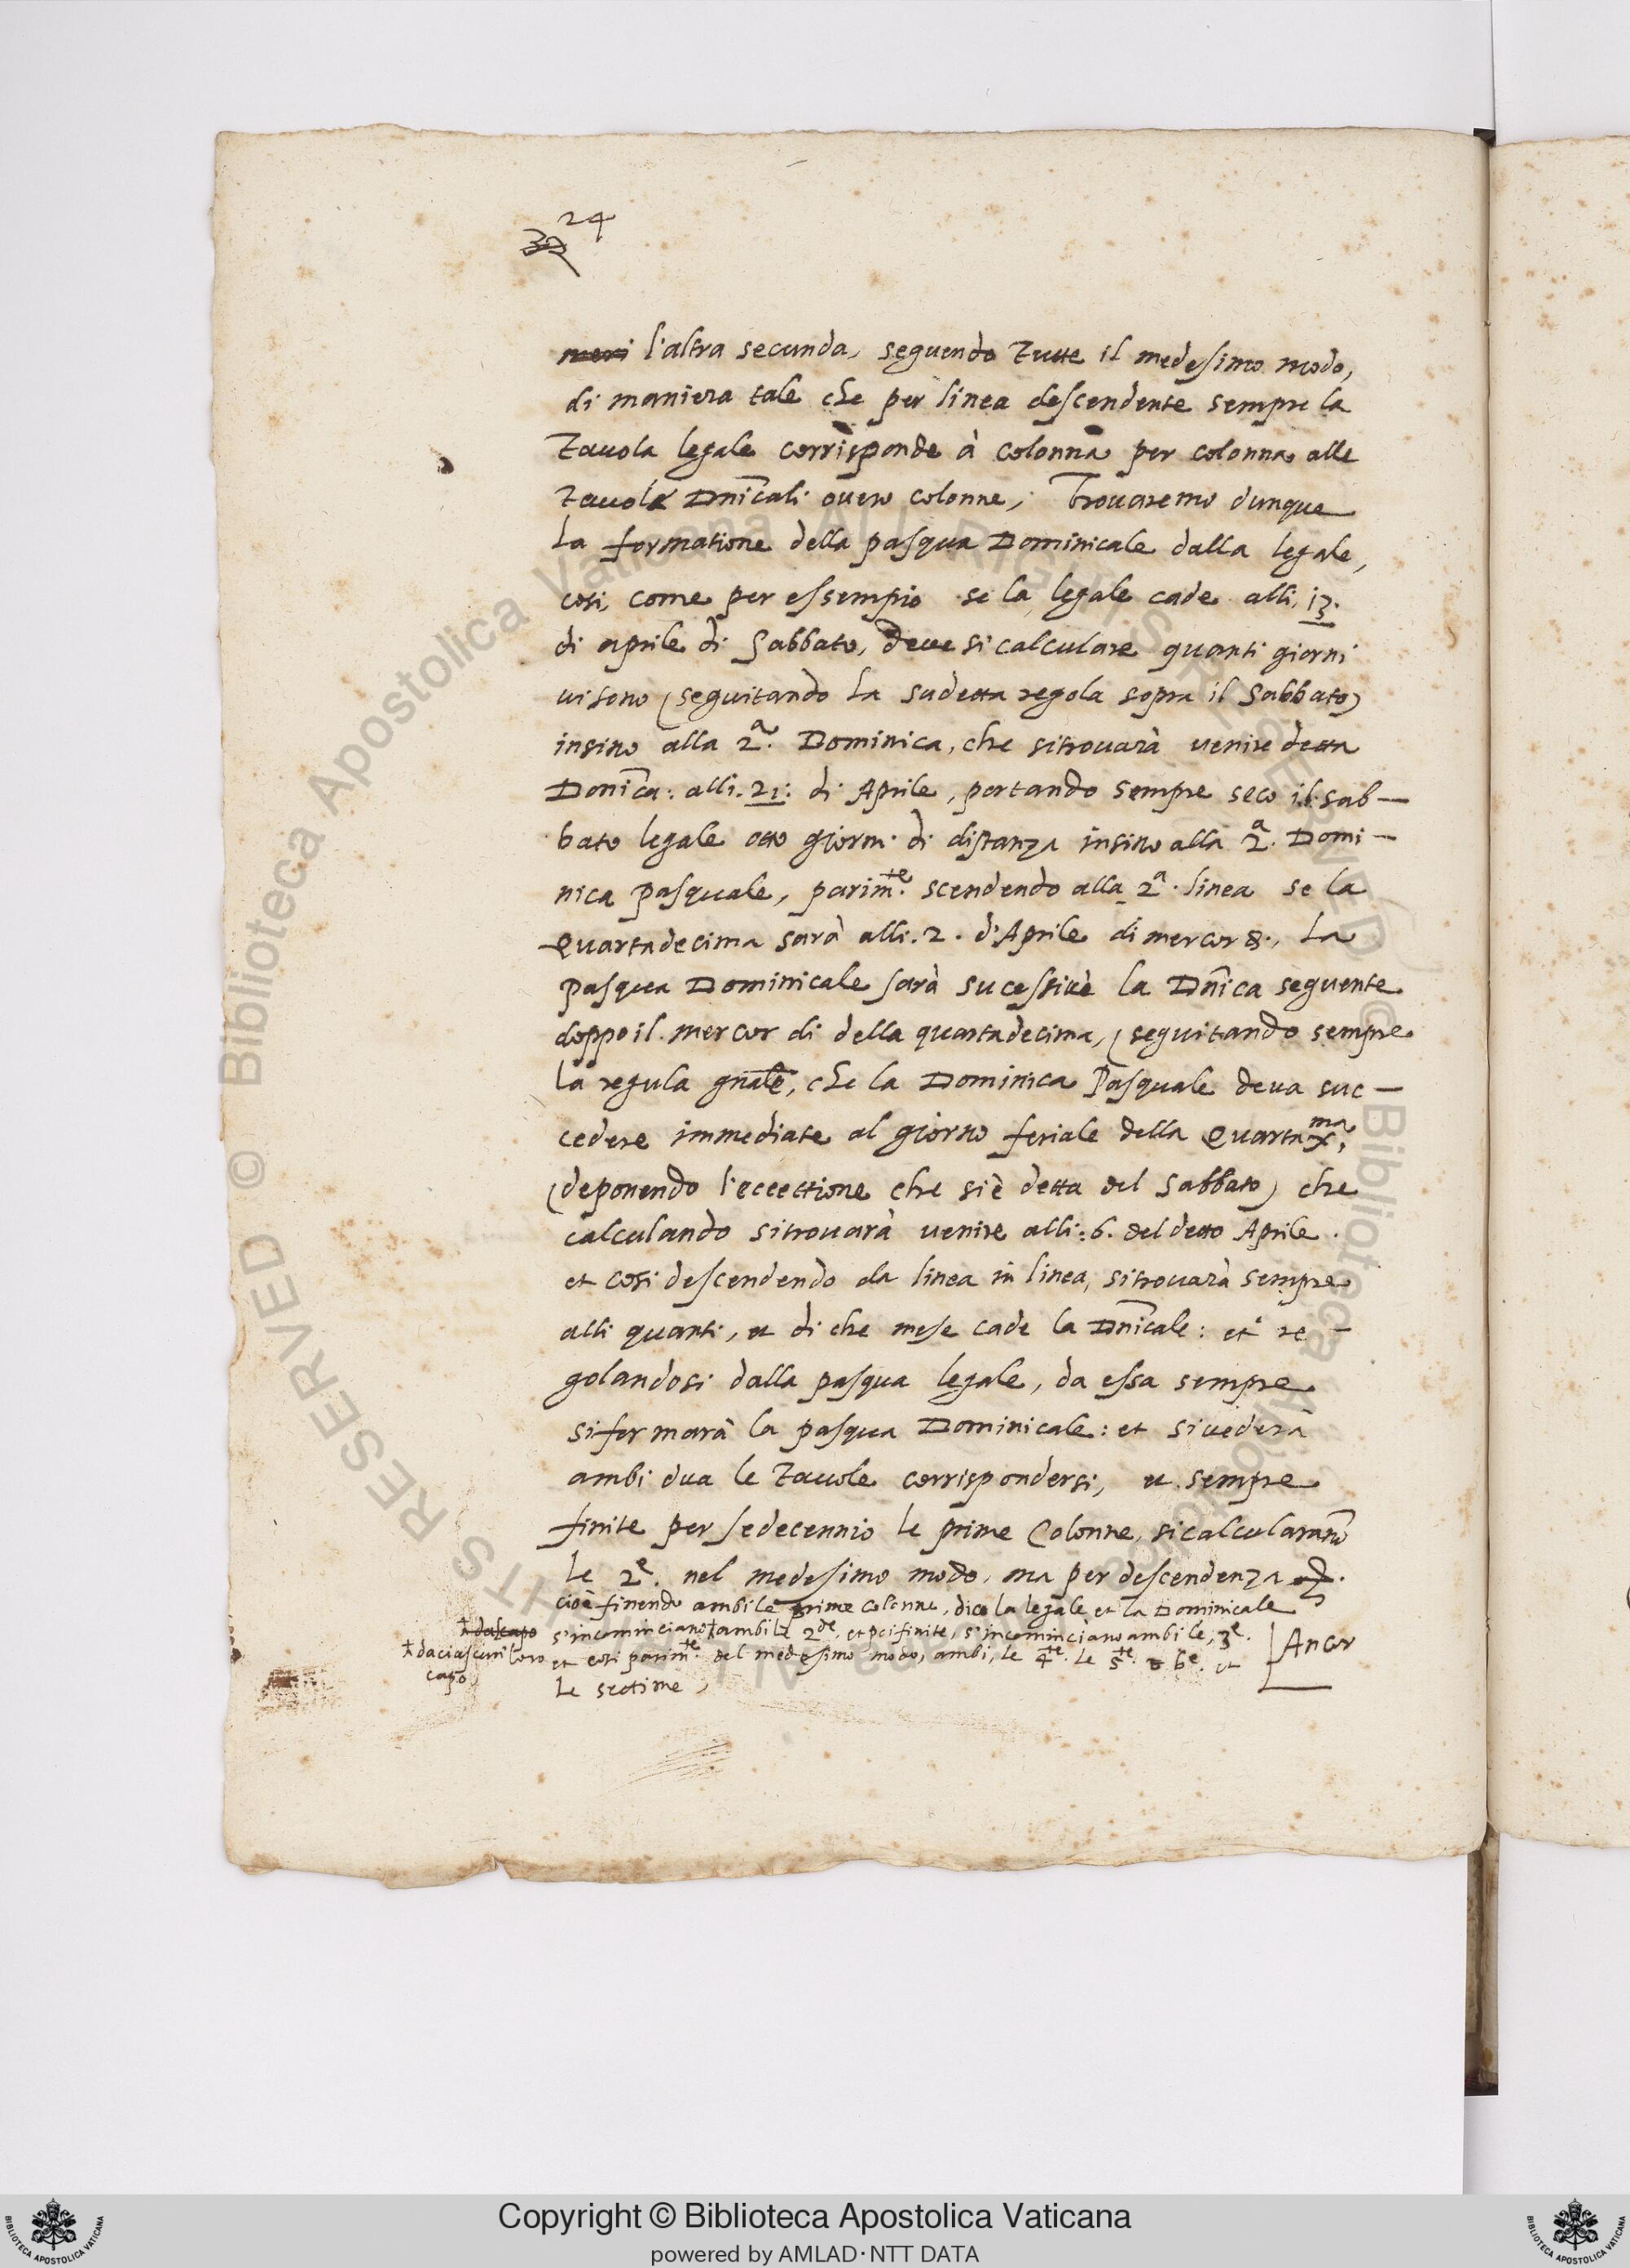 24
32
meri l'altra secunda, seguendo Tutte il medesimo modo,
di maniera tale che per linea descendente sempre la
Tavola legale corrisponde à colonna per colonna alle
Tavole Dnicali overo colonne; Trovaremo dunque
La formatione della pasqua Dominicale dalla legale,
cosi, come per essempio se la legale cade alli, 13.
di aprile di Sabbato, deve si calculare quanti giorni
vi sono (seguitando la sudetta regola sopra il Sabbato)
insino alla 2ª. Dominica, che si trovarà venire detta
Donica: alli. 21: di Aprile, portando sempre seco il sab-
bato legale otto giorni di distanza insino alla 2ª. Domi-
nica Pasquale, parimte. scendendo alla 2ª. linea se la
Quartadecima sarà alli. 2. d'Aprile di mercor 8., La
Pasqua Dominicale sarà sucessivè la Dnica seguente
doppo il mercor di della quartadecima, (seguitando sempre
la regula gnale, che la Dominica Pasquale deva suc-
cedere immediate al giorno feriale della Quarta xma,
(deponendo l'eccettione che si è detta del Sabbato) che
calculando si trovarà venire alli: 6. del detto Aprile.
et cosi descendendo da linea in linea, si trovarà sempre
alli quanti, et di che mese cade la Dnicale: et re-
golandosi dalla pasqua legale, da essa sempre
si formarà la pasqua Dominicale: et si vederà
ambi dua le Tavole corrispondersi, et sempre
finite per sedecennio le prime Colonne, si calcularano
le 2e. nel medesimo modo, ma per descendenza
cioè finendo ambi le prime colonne, dico la legale et la Dominicale
s'incominciano † ambi le 2de, et poi finite, s'incominciano ambi le, 3e.
et cosi parimte. del medesimo modo, ambi, le 4te. le 5te. 6e. et
le settime,
† dal capo
† da ciascun loro
capo,
Ancor
© Biblioteca Apostolica Vaticana ALL RIGHTS RESERVED
© Biblioteca Apostolica Vaticana ALL RIGHTS RESERVED
Copyright © Biblioteca Apostolica Vaticana
powered by AMLAD·NTT DATA
BIBLIOTECA APOSTOLICA VATICANA
BIBLIOTECA APOSTOLICA VATICANA